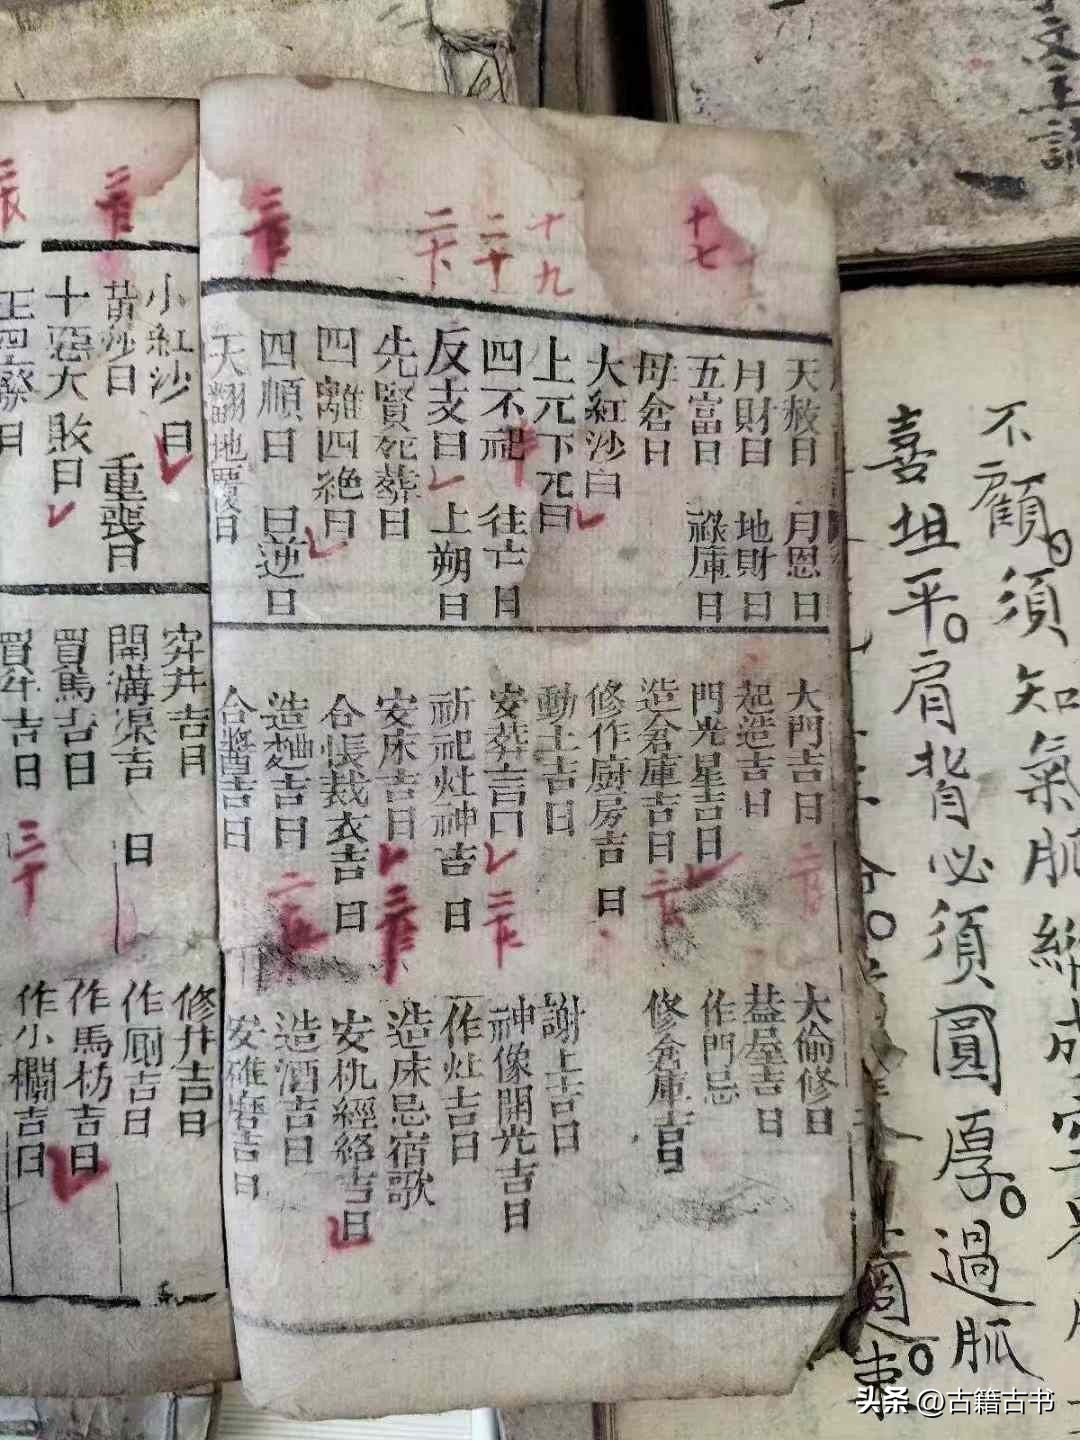 十七
十九
二十
三十
天赦日　月恩日
月財日　地財日
五富日　祿庫日
母倉日
大紅沙日
上元下元日
四不祀　往亡日
反支日　上朔日
先賢死葬日
四離四絶日
四順日　四逆日
天翻地覆日
大門吉日
起造吉日
門光星吉日
造倉庫吉日
修作廚房吉日
動土吉日
安葬吉日
祈祀灶神吉日
安床吉日
合帳裁衣吉日
造麯吉日
合醬吉日
大偷修日
葢屋吉日
作門忌
修倉庫吉日
謝土吉日
神像開光吉日
作灶吉日
造床忌宿歌
安机經絡吉日
造酒吉日
安碓磨吉日
小紅沙日
黃沙日　重喪日
十惡大敗日
穿井吉日
開溝渠吉日
買馬吉日
買牛吉日
修井吉日
作厠吉日
作馬枋吉日
作小欄吉日
不顧。須知氣脈
喜坦平。肩背必須圓厚。過脈
週
束。
头条 @古籍古书